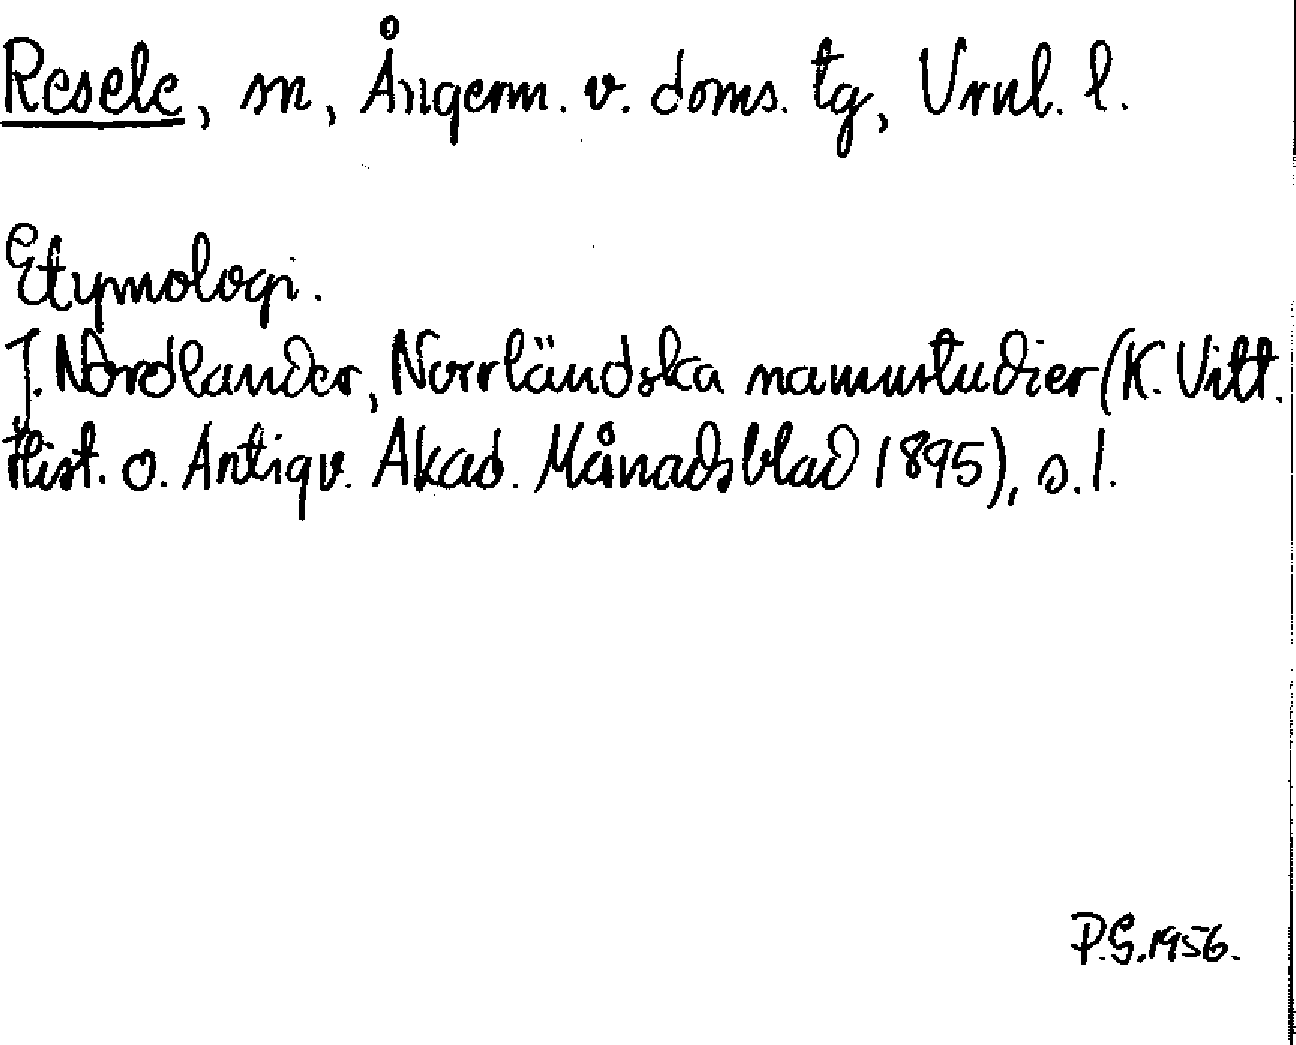 Resele, sn, Ångerm. v. doms. tg, Vrnl. l.
Etymologi.
J. Nordlander, Norrländska namnstudier (K. Vitt.
Hist. o. Antiqv. Akad. Månadsblad 1895), s. 1.
P.G. 1956.